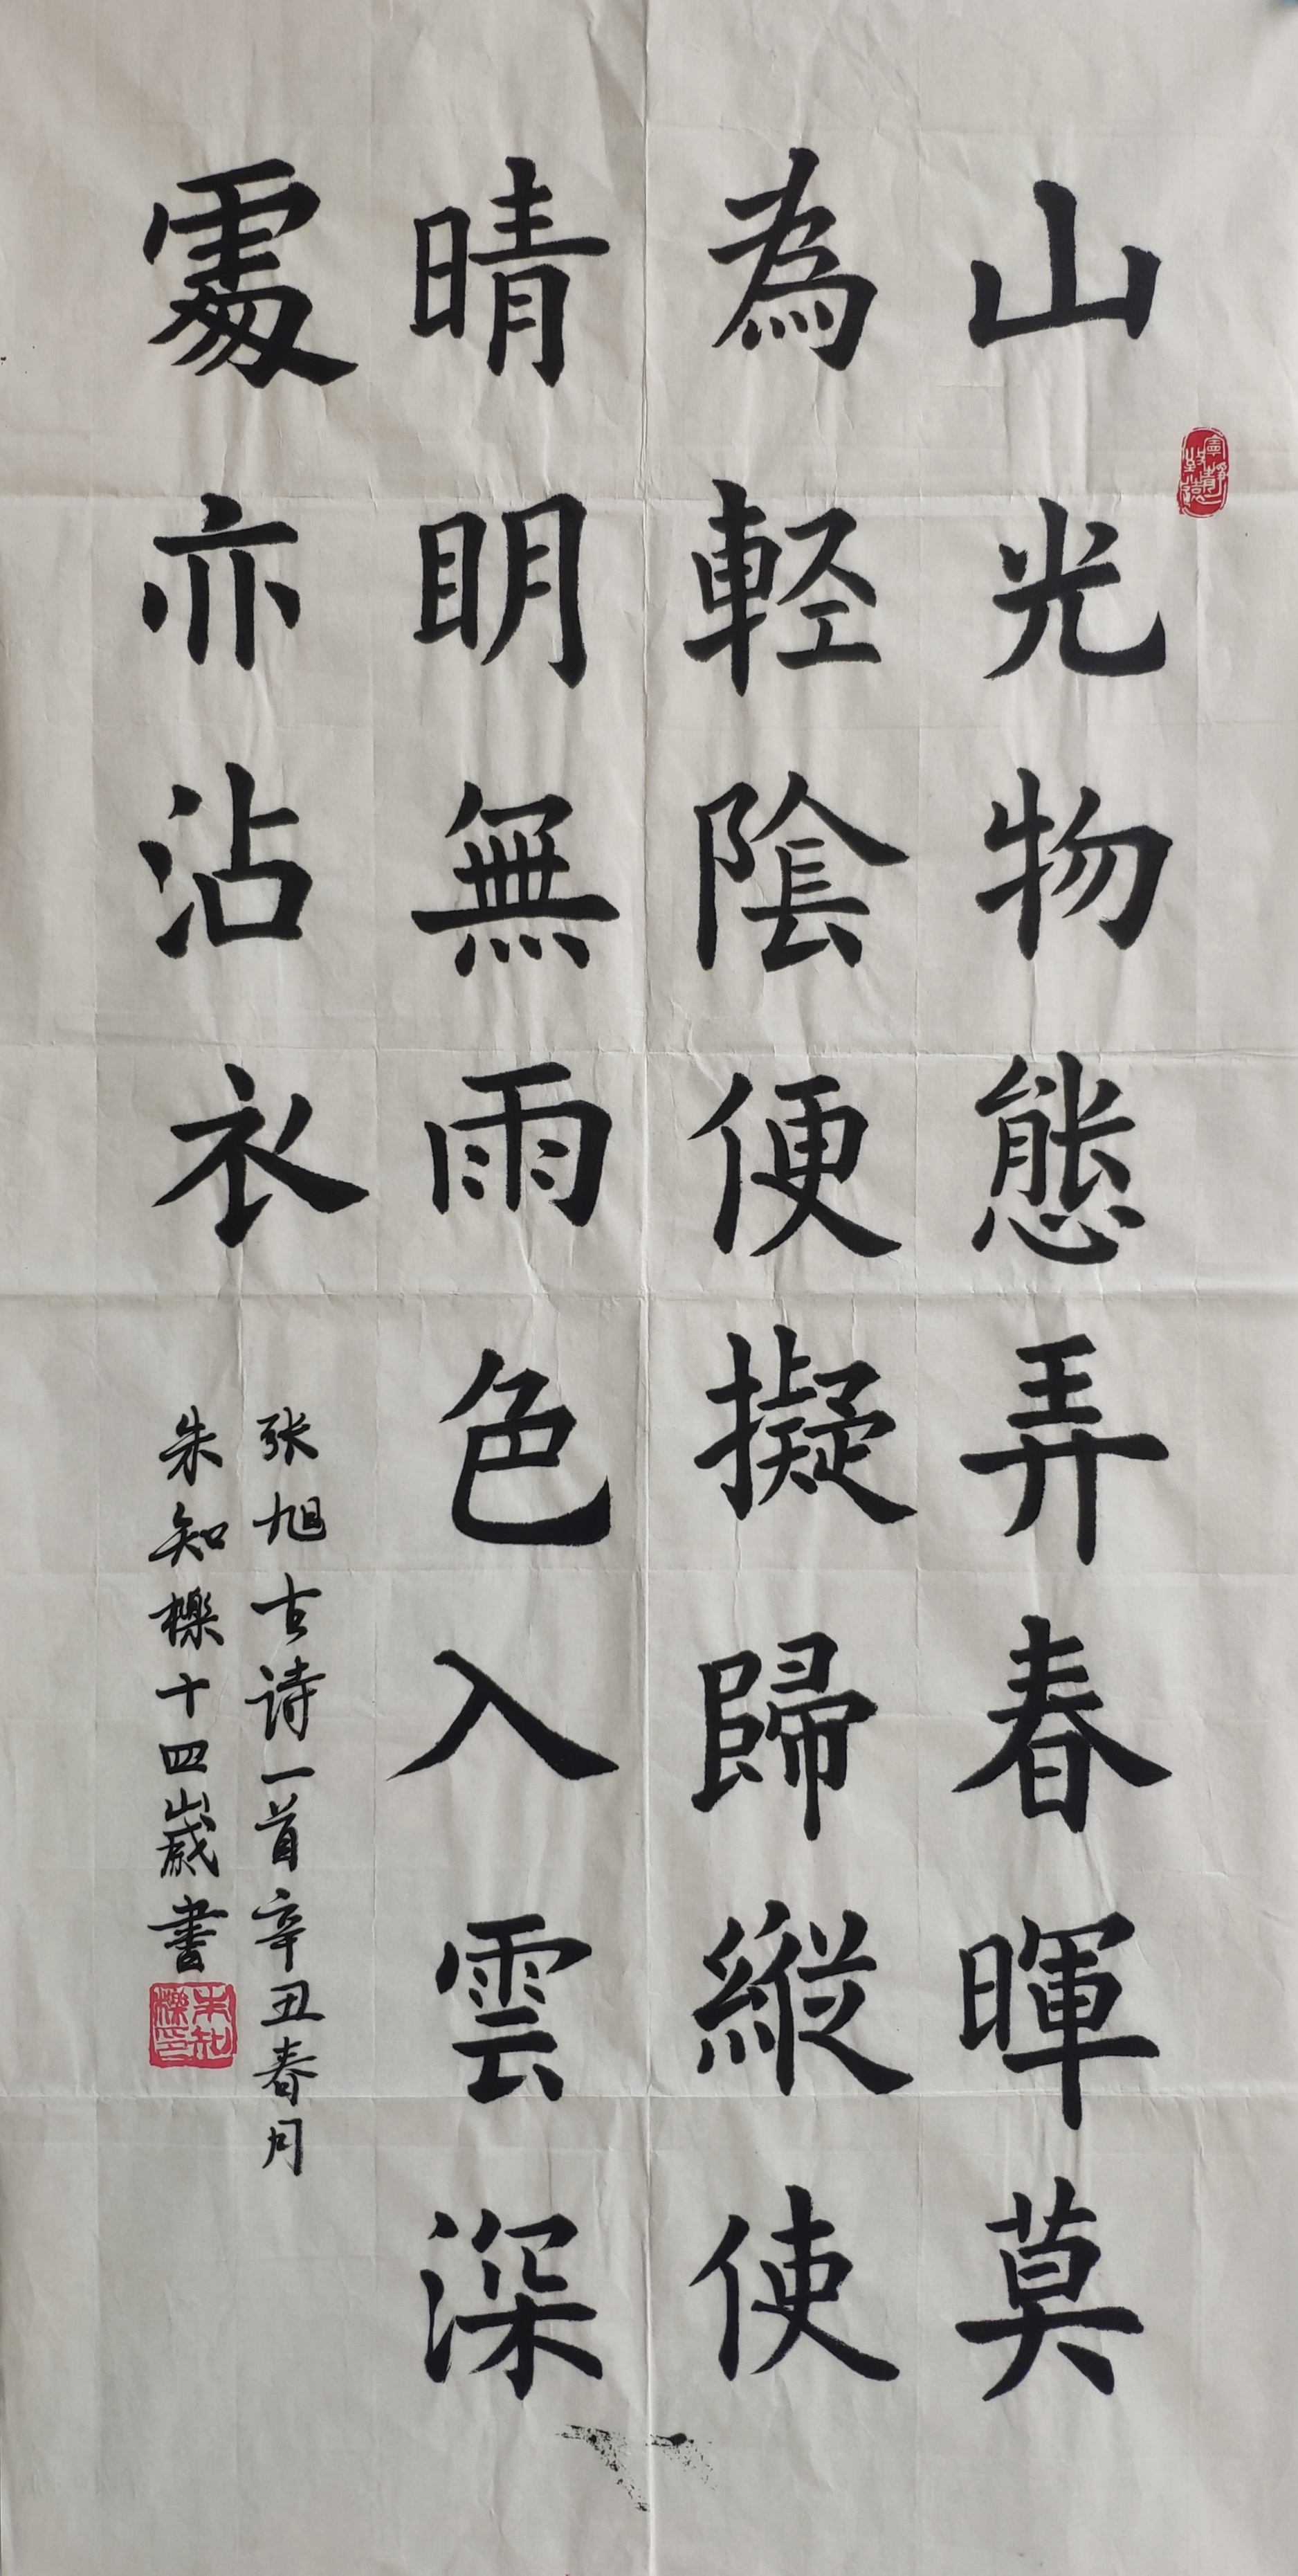 山光物態弄春暉莫
為輕陰便擬歸縱使
晴明無雨色入雲深
處亦沾衣
张旭古诗一首辛丑春月
朱知櫟十四歲書
寧靜致遠
朱知櫟印